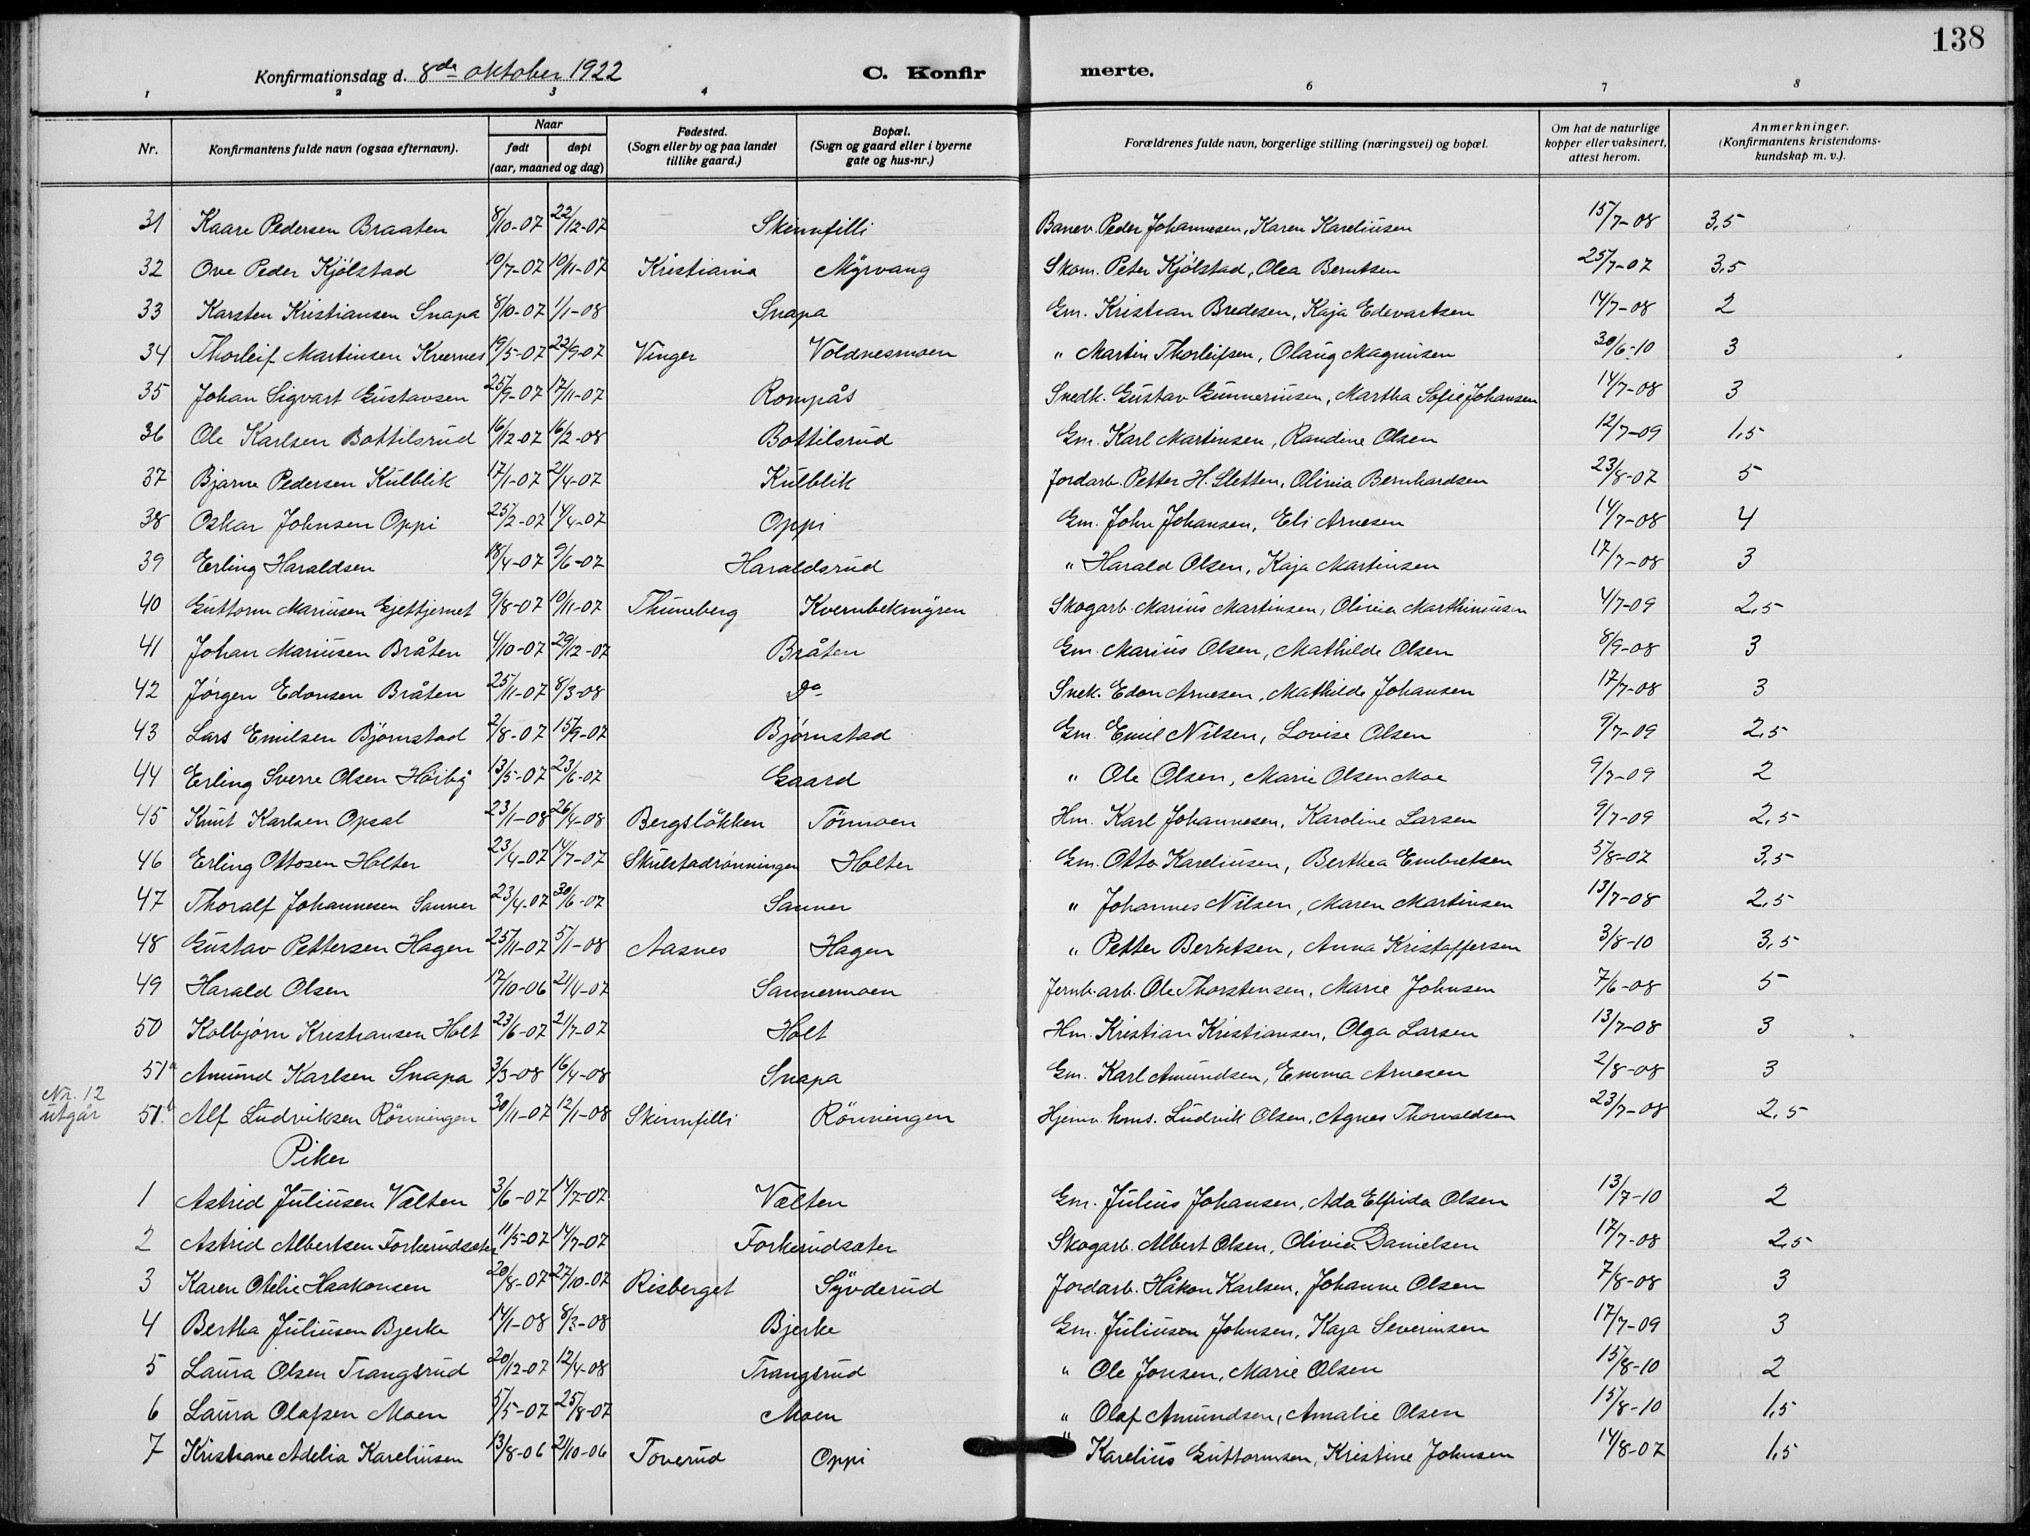 138
Konfirmationsdag d. 8de oktober 1922 C. Konfir merte.
1 2 3 4 6 7 8
Nr. Konfirmantens fulde navn (ogsaa efternavn). Naar født døpt (aar, maaned og dag) Fødested. (Sogn eller by og paa landet tillike gaard.) Bopæl. (Sogn og gaard eller i byerne gate og hus-nr.) Forældrenes fulde navn, borgerlige stilling (næringsvei) og bopæl. Om hat de naturlige kopper eller vaksinert, attest herom. Anmerkninger. (Konfirmantens kristendoms-kundskap m. v.).
31 Kaare Pedersen Braaten 8/10-07 22/12-07 Skinnfilli Banev. Peder Johannesen, Karen Kareliusen 15/7-08 3,5
32 Ove Peder Kjölstad 10/7-07 10/11-07 Kristiania Myrvang Skom. Peter Kjölstad, Olea Berntsen 25/7-07 3,5
33 Karsten Kristiansen Snapa 8/10-07 1/1-08 Snapa Gm. Kristian Bredesen, Kaja Edevartsen 14/7-08 2
34 Thorleif Martinsen Kvernes 19/5-07 22/9-07 Vinger Voldnesmoen " Martin Thorleifsen, Olaug Magnusen 30/6-10 3
35 Johan Sigvart Gustavsen 25/9-07 17/11-07 Rompås Snedk. Gustav Gunneriusen, Martha Sofie Johansen 14/7-08 3
36 Ole Karlsen Bottilsrud 16/12-07 16/2-08 Bottilsrud Gm. Karl Martinsen, Randine Olsen 12/7-09 1,5
37 Bjarne Pedersen Kulblik 17/1-07 2/4-07 Kulblik Jordarb. Petter H. Sletten, Olivia Bernhardsen 23/8-07 5
38 Oskar Johnsen Oppi 25/2-07 14/4-07 Oppi Gm. John Johansen, Eli Arnesen 14/7-08 4
39 Erling Haraldsen 18/4-07 9/6-07 Haraldsrud " Harald Olsen, Kaja Martinsen 17/7-08 3
40 Guttorm Mariusen Gjettjernet 9/8-07 10/11-07 Thuneberg Kvernbekmyren Skogarb. Marius Martinsen, Olivia Marthiniusen 4/7-09 2,5
41 Johan Mariusen Bråten 4/10-07 29/12-07 Bråten Gm. Marius Olsen, Mathilde Olsen 8/9-08 3
42 Jørgen Edonsen Bråten 25/11-07 8/3-08 Do Snek. Edon Arnesen, Mathilde Johansen 17/7-08 3
43 Lars Emilsen Björnstad 2/8-07 15/9-07 Björnstad Gm. Emil Nilsen, Lovise Olsen 9/7-09 2,5
44 Erling Sverre Olsen Höiby 13/5-07 23/6-07 Gaard " Ole Olsen, Marie Olsen Moe 9/7-09 2
45 Knut Karlsen Opsal 23/1-08 26/4-08 Bergslökken Tönmoen Hm. Karl Johannesen, Karoline Larsen 9/7-09 2,5
46 Erling Ottosen Holter 23/4-07 14/7-07 Skulstadrönningen Holter Gm. Otto Kareliusen, Berthea Embretsen 5/8-07 3,5
47 Thoralf Johannesen Sanner 23/4-07 30/6-07 Sanner " Johannes Nilsen, Maren Martinsen 13/7-08 2,5
48 Gustav Pettersen Hagen 25/11-07 5/1-08 Aasnes Hagen " Petter Berntsen, Anna Kristoffersen 3/8-10 3,5
49 Harald Olsen 17/10-06 21/4-07 Sannermoen Jernb.arb. Ole Thorstensen, Marie Johnsen 7/6-08 5
50 Kolbjörn Kristiansen Holt 23/6-07 21/7-07 Holt Hm. Kristian Kristiansen, Olga Larsen 13/7-08 3
51a Amund Karlsen Snapa 3/3-08 16/4-08 Snapa Gm. Karl Amundsen, Emma Arnesen 2/8-08 3
Nr. 12 utgår 51b Alf Ludviksen Rönningen 30/11-07 12/1-08 Skinnfilli Rönningen Hjemv. hms. Ludvik Olsen, Agnes Thorvaldsen 23/7-08 2,5
Piker
1 Astrid Juliusen Vælten 3/6-07 14/7-07 Vælten Gm. Julius Johansen, Ada Elfrida Olsen 13/7-10 2
2 Astrid Albertsen Forkerudsæter 11/5-07 14/7-07 Forkerudsæter Skogarb. Albert Olsen, Olivia Danielsen 17/7-08 2,5
3 Karen Otelie Haakonsen 20/8-07 27/10-07 Risberget Syvderud Jordarb. Håkon Karlsen, Johanne Olsen 7/8-08 3
4 Bertha Juliusen Bjerke 14/1-08 8/3-08 Bjerke Gm. Juliusen Johnsen, Kaja Severinsen 17/7-09 3
5 Laura Olsen Trangsrud 20/12-07 12/4-08 Trangsrud " Ole Jonsen, Marie Olsen 15/8-10 2
6 Laura Olafsen Moen 5/5-07 25/8-07 Moen " Olaf Amundsen, Amalie Olsen 15/8-10 1,5
7 Kristiane Adelia Kareliusen 13/8-06 21/10-06 Toverud Oppi " Karelius Guttormsen, Kristine Johnsen 14/8-07 1,5